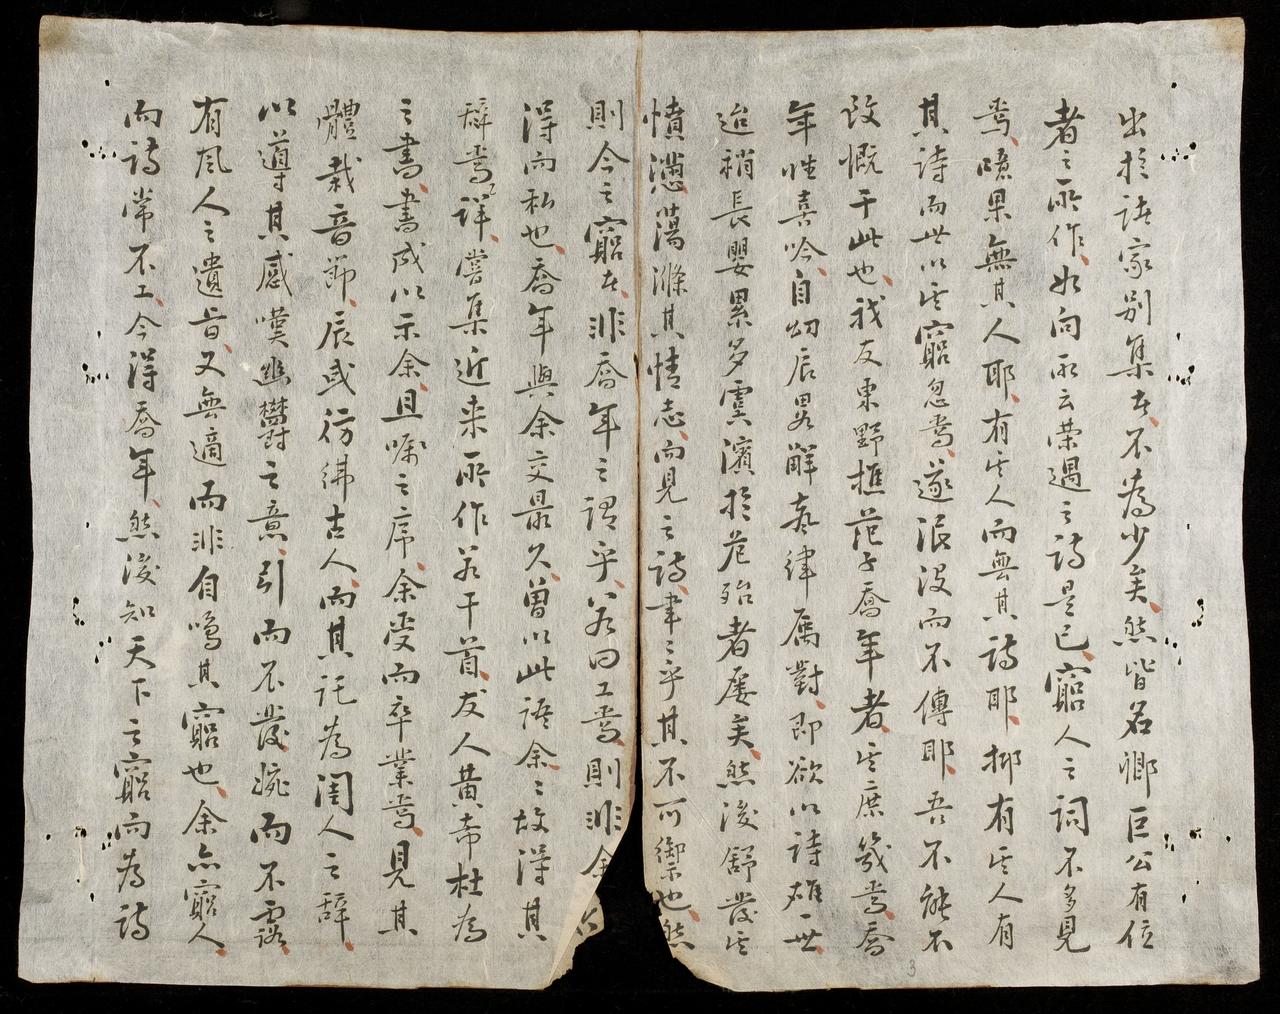 出於諸家別集者、不為少矣、然皆名卿巨公有位
者之所作、如向所云榮遇之詩是已、窮人之詞不多見
焉、噫果無其人耶、有其人而無其詩耶、抑有其人有
其詩而世以其窮忽焉、遂泯沒而不傳耶、吾不能不
致慨于此也、我友東野樵范子喬年者、其庶幾焉、喬
年性喜吟、自幼居畧解聲律屬對、即欲以詩雄一世、
迨稍長嬰累多、實濱於危殆者屢矣、然後舒發其
憤懣、蕩滌其情志、而見之詩、聿聿乎其不可禦也、然
則今之窮者、非喬年之謂乎、若曰工焉、則非余
得而私也、喬年與余交最久、曾以此語余、余故得其
辭焉詳、嘗集近来所作若干首、友人黄帝杜為
之書、書成以示余、且嘱之序、余受而卒業焉、見其
體裁音節、居或彷彿古人、而其託為閨人之辭、
以導其感嘆幽鬱之意、引而不發、婉而不露、
有風人之遺旨、又無適而非自鳴其窮也、余亦窮人、
而詩常不工、今得喬年、然後知天下之窮而為詩
3